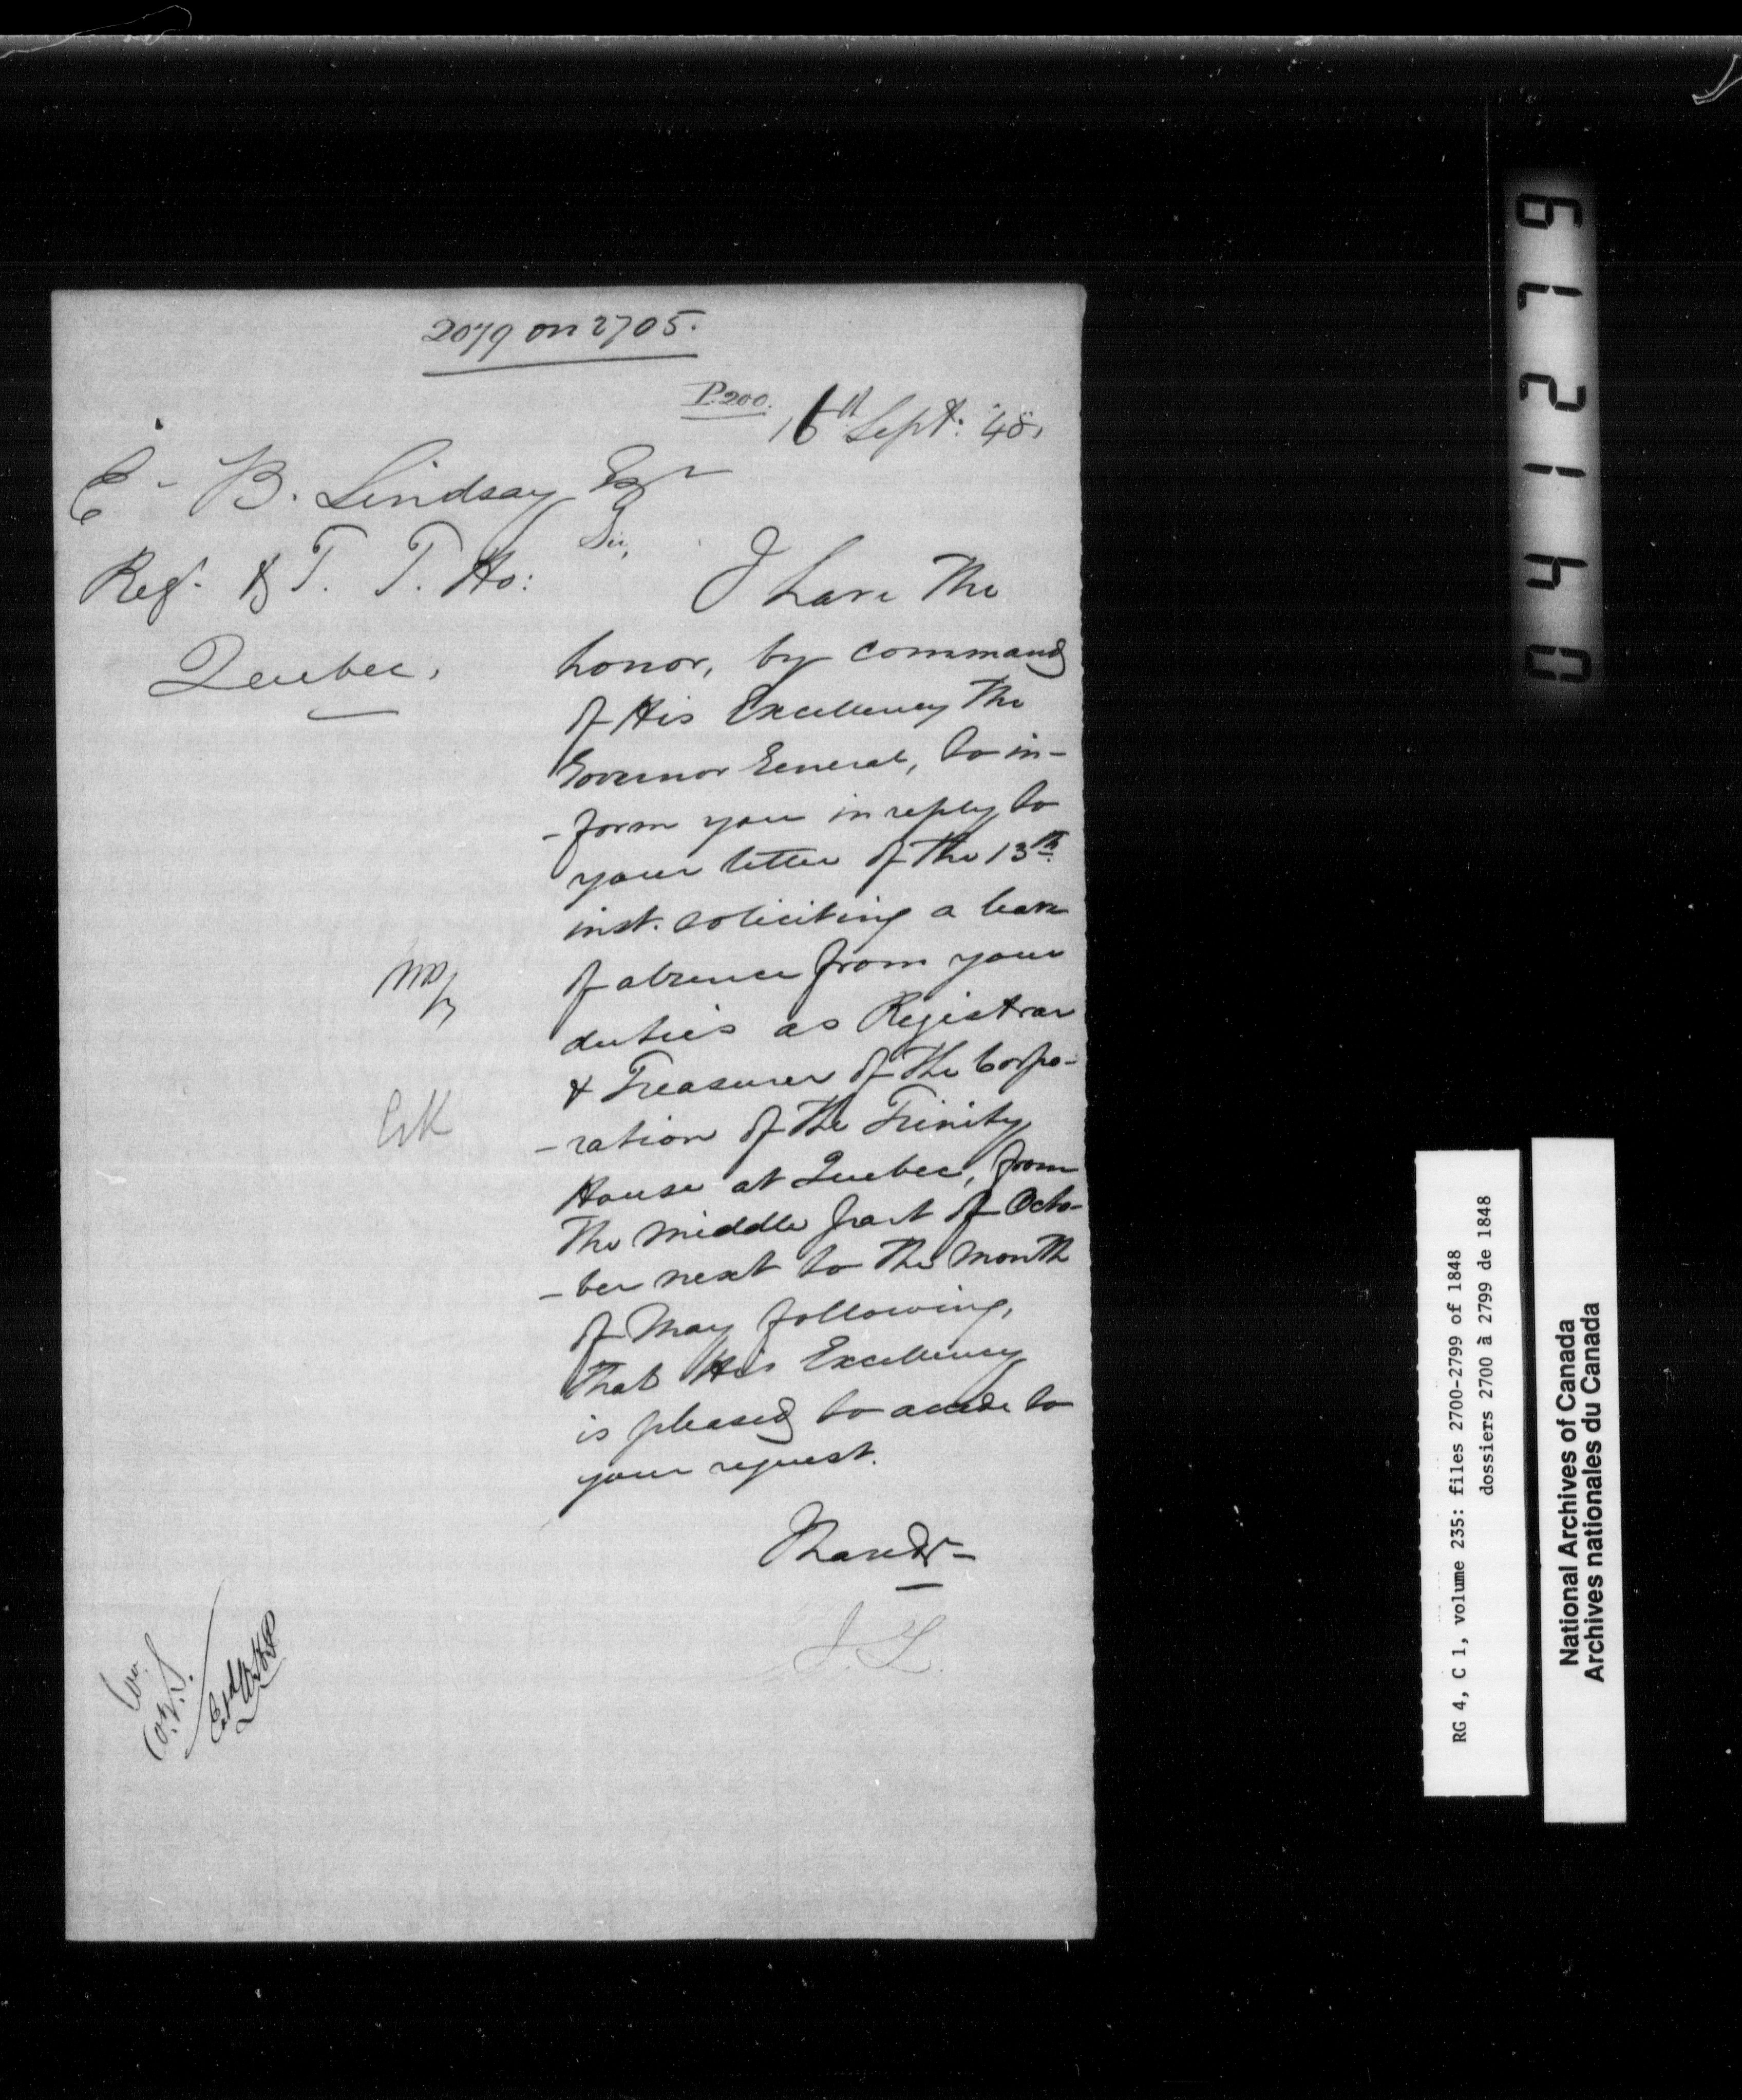 2079 on 2705.
P. 200.
16th Sept: '48.
E. B. Lindsay Esqr
Sir,
Regr & T. T. Ho:
Quebec.
I have the
honor, by command
of His Excellency the
Governor General, to in-
-form you in reply to
your letter of the 13th
inst. soliciting a leave
of absence from your
duties as Registrar
& Treasurer of the Corpo-
-ration of the Trinity
House at Quebec, from
the middle part of Octo-
-ber next to the month
of May following,
that His Excellency
is pleased to accede to
your request.
I have &c
J. L.
0412179
RG 4, C 1, volume 235: files 2700-2799 of 1848
dossiers 2700 à 2799 de 1848
National Archives of Canada
Archives nationales du Canada